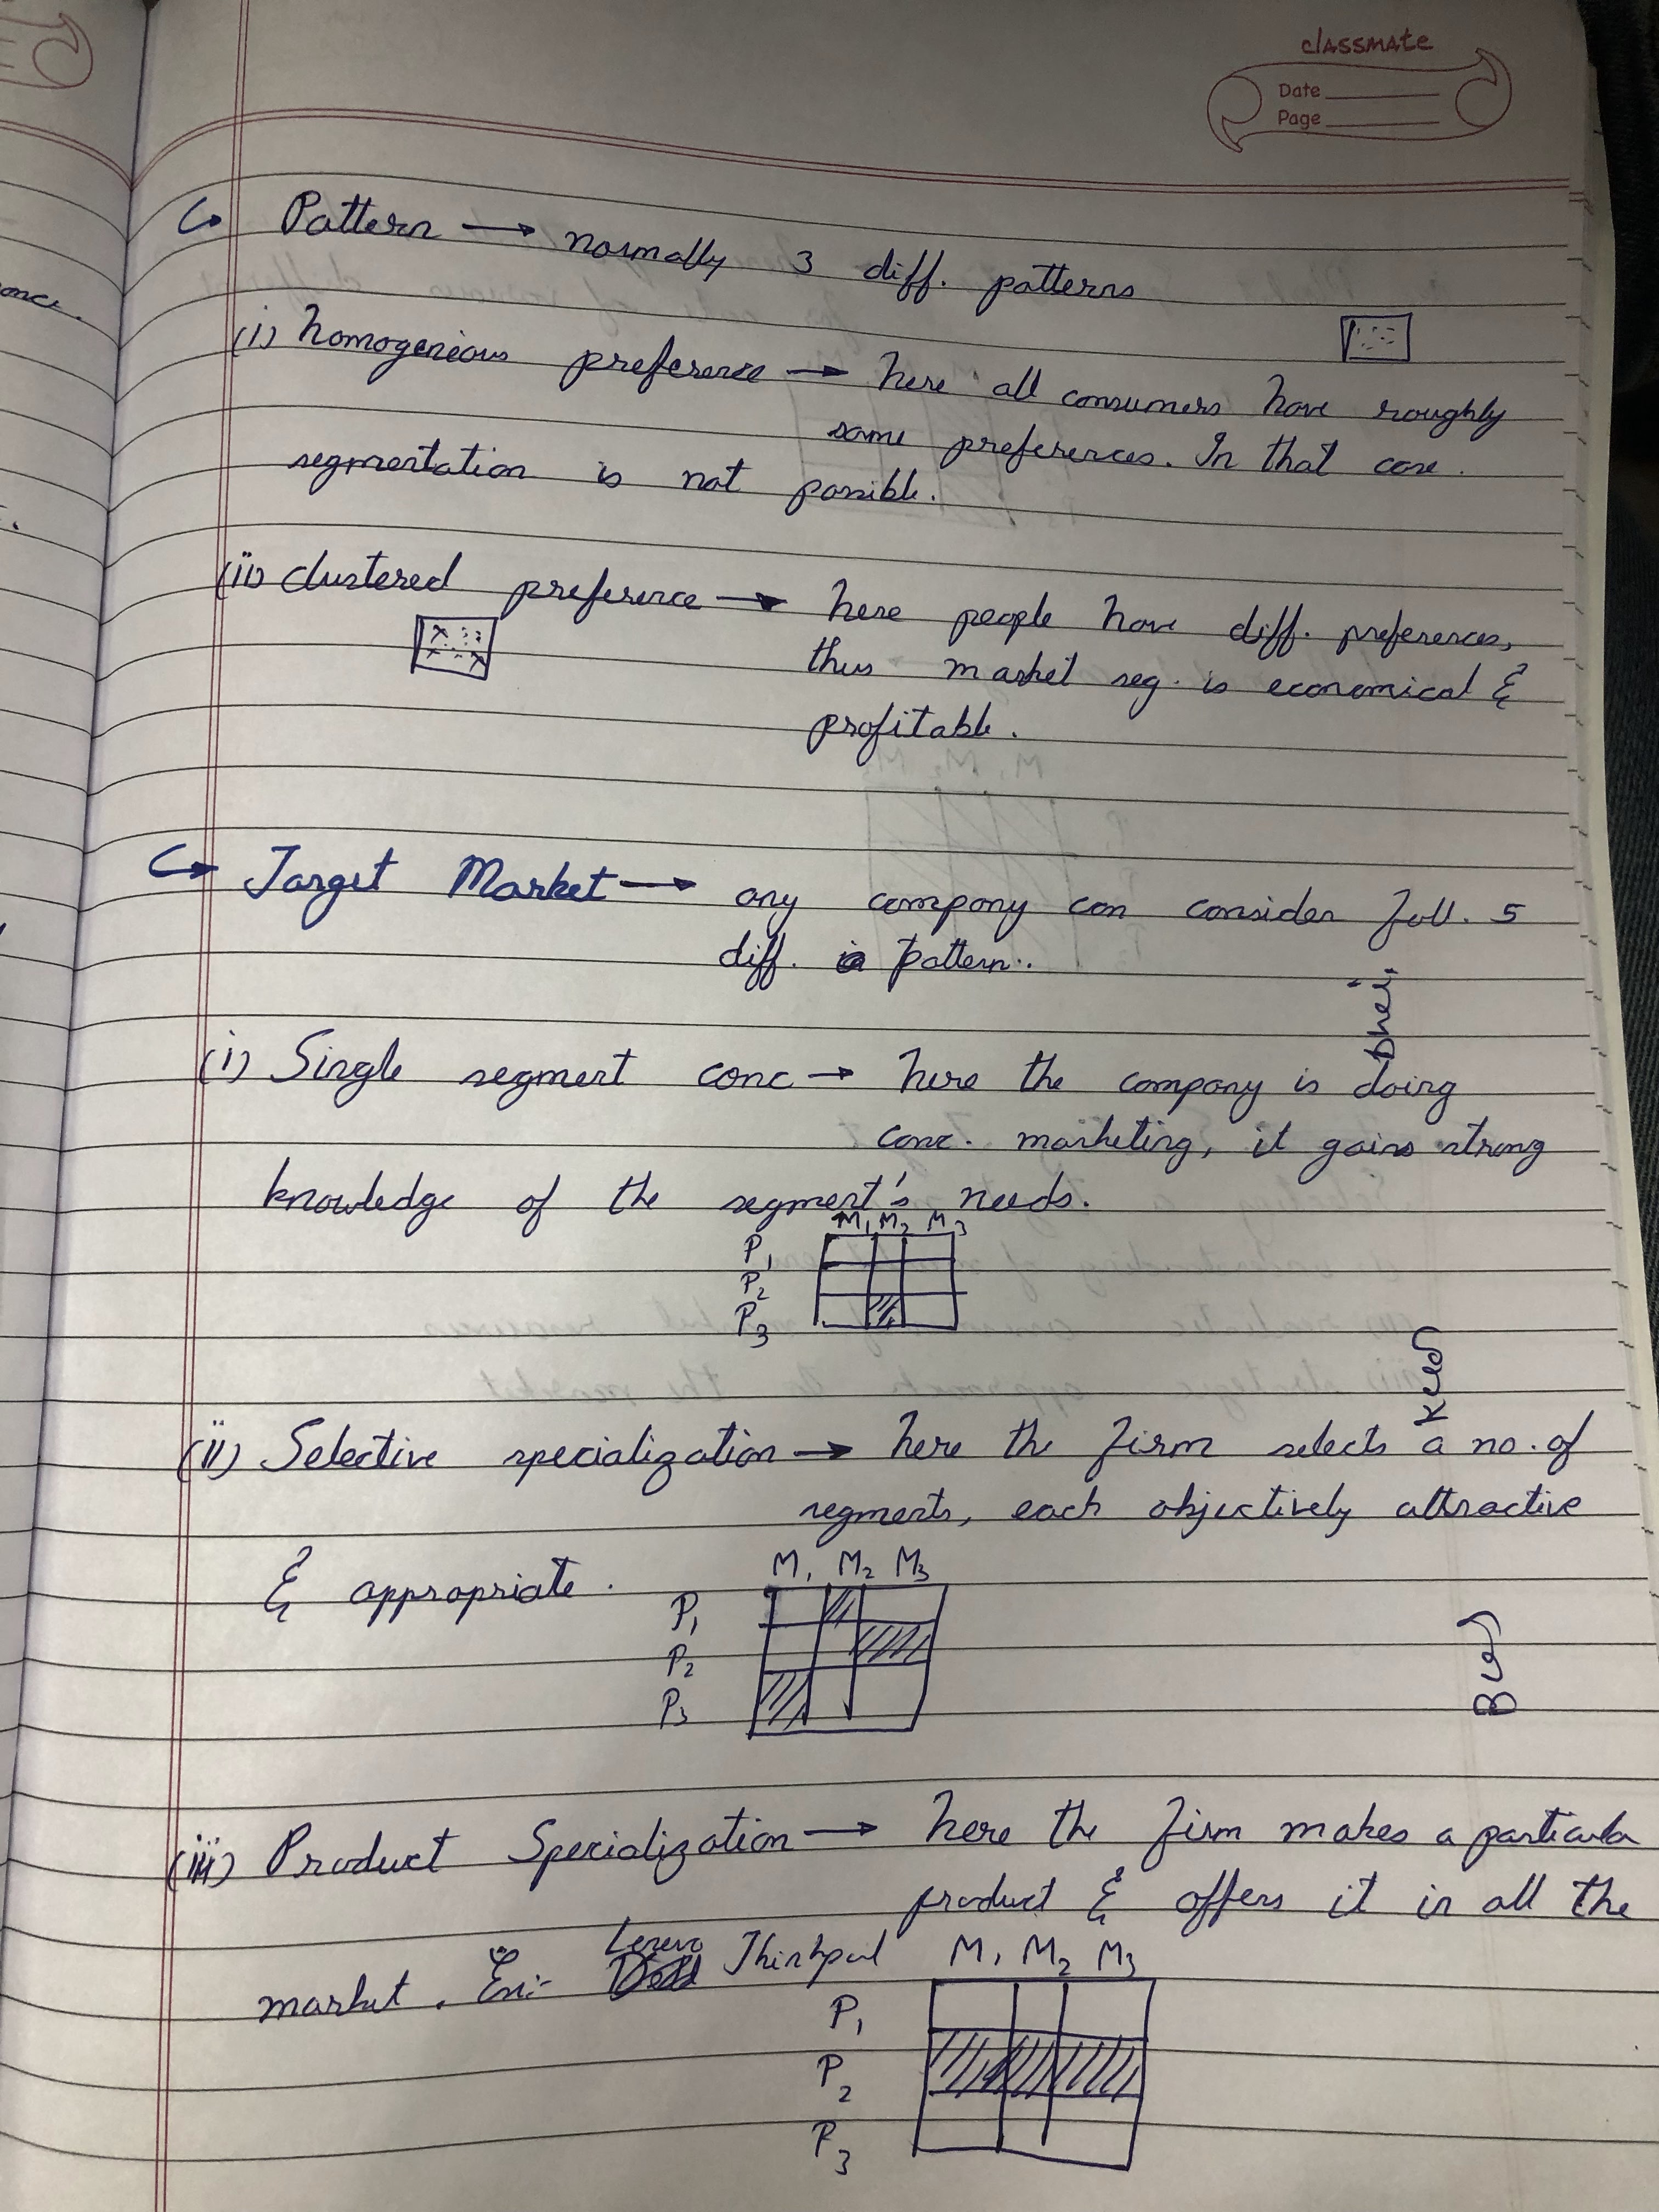 classmate
Date
Page
↳ Pattern → normally 3 diff. patterns
(i) homogeneous preference → here all consumers have roughly
same preferences. In that case
segmentation is not possible.
(ii) clustered preference → here people have diff. preferences,
thus market seg. is economical &
profitable.
↳ Target Market → any company can consider foll. 5
diff. pattern..
(i) Single segment conc → here the company is doing
conc. marketing, it gains strong
knowledge of the segment's needs.
M1 M2 M3
P1
P2
P3
(ii) Selective specialization → here the firm selects a no. of
segments, each objectively attractive
& appropriate.
M1 M2 M3
P1
P2
P3
(iii) Product Specialization → here the firm makes a particula
product & offers it in all the
market. Ex:- Lenovo Thinkpad
M1 M2 M3
P1
P2
P3